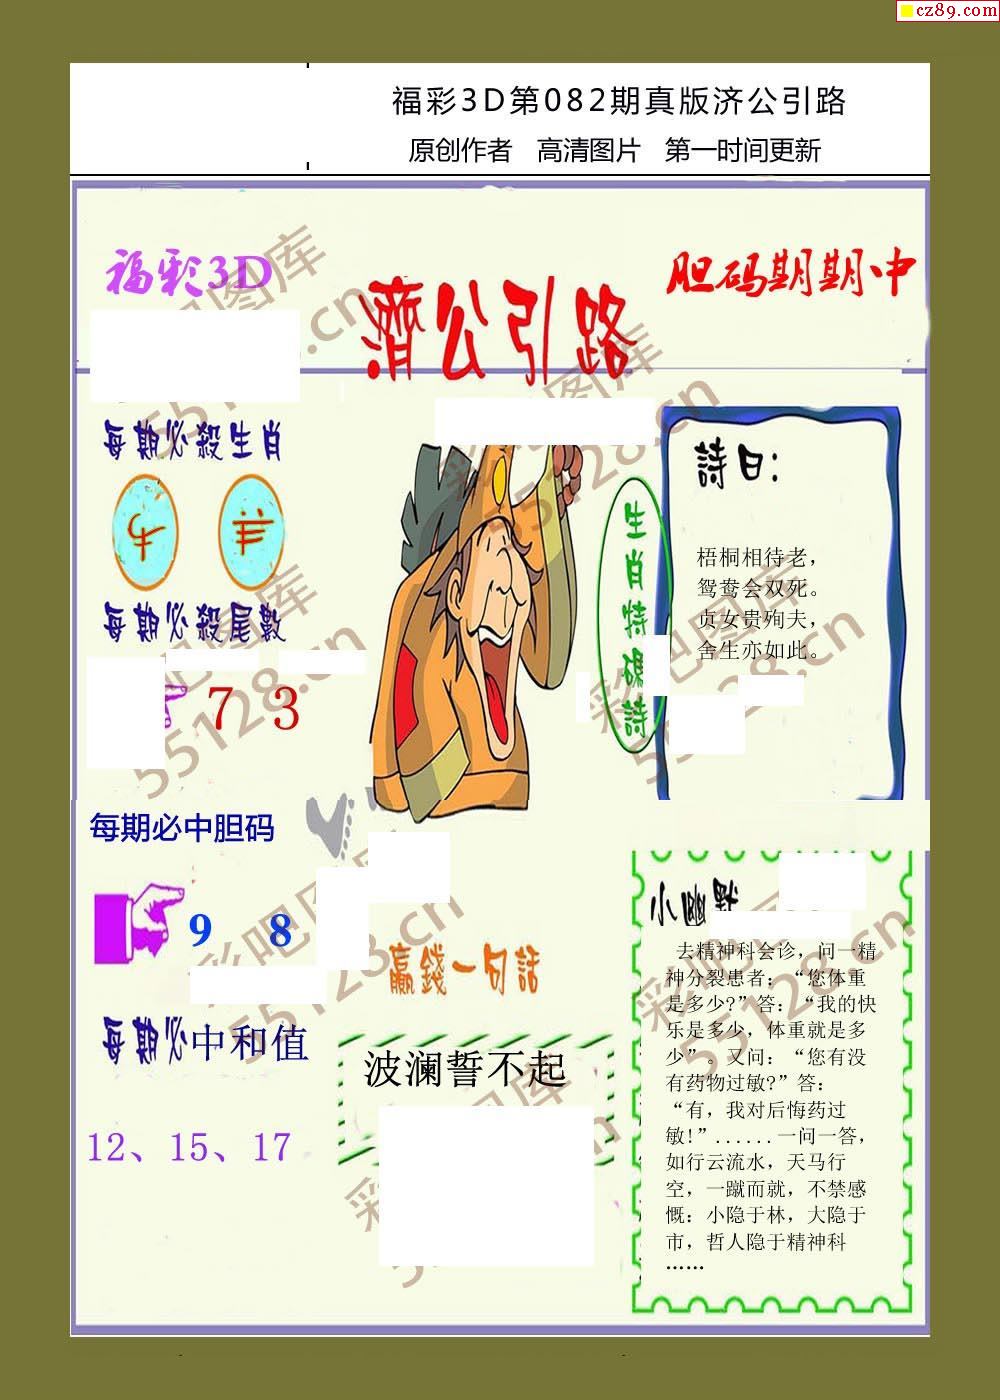 cz89.com
福彩3D第082期真版济公引路
原创作者 高清图片 第一时间更新
福彩3D
胆码期期中
濟公引路
每期必殺生肖
牛 羊
每期必殺尾數
7 3
生肖特碼詩
詩曰：
梧桐相待老，
鸳鸯会双死。
贞女贵殉夫，
舍生亦如此。
每期必中胆码
9 8
每期必中和值
12、15、17
贏錢一句話
波澜誓不起
小幽默
去精神科会诊，问一精
神分裂患者：“您体重
是多少?”答：“我的快
乐是多少，体重就是多
少”。又问：“您有没
有药物过敏?”答：
“有，我对后悔药过
敏!”......一问一答，
如行云流水，天马行
空，一蹴而就，不禁感
慨：小隐于林，大隐于
市，哲人隐于精神科
……
彩吧图库
55128.cn